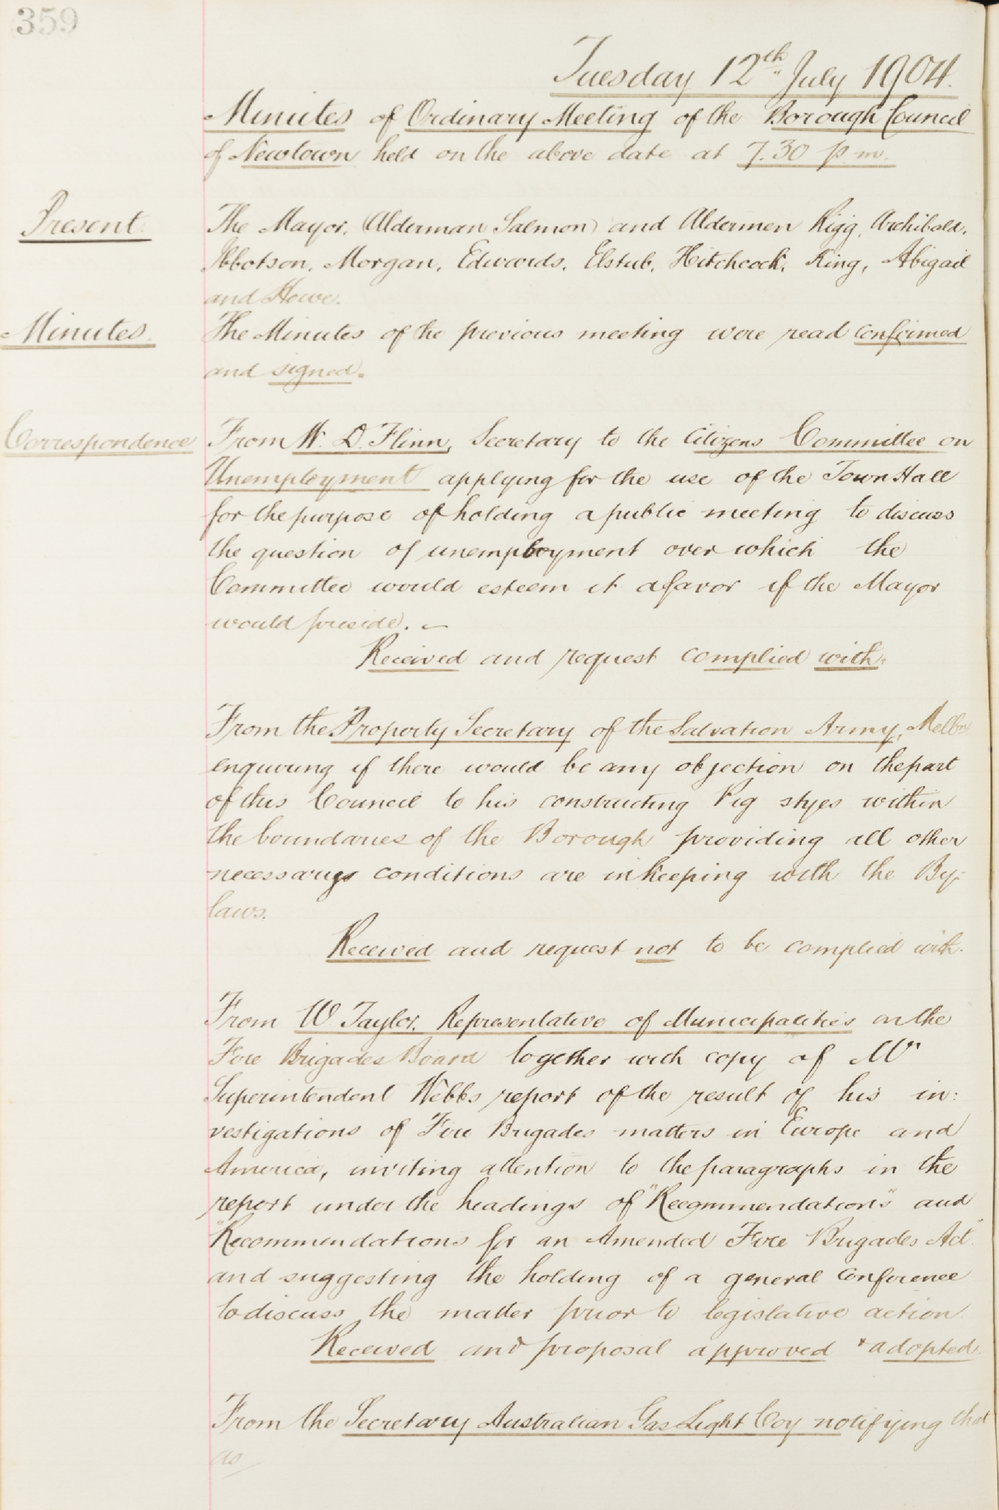 359
Tuesday 12th July 1904.
Minutes of Ordinary Meeting of the Borough Council
of Newtown held on the above date at 7.30 p.m.
Present. The Mayor, (Alderman Salmon) and Aldermen Rigg, Archibald,
Ibbotson, Morgan, Edwards, Elstub, Hitchcock, King, Abigail
and Howe.
Minutes. The Minutes of the previous meeting were read confirmed
and signed.
Correspondence From W. D. Flinn, Secretary to the Citizens Committee on
Unemployment applying for the use of the Town Hall
for the purpose of holding a public meeting to discuss
the question of unemployment over which the
Committee would esteem it a favor if the Mayor
would preside. —
Received and request complied with.
From the Property Secretary of the Salvation Army, Melbo
enquiring if there would be any objection on the part
of this Council to his constructing Pig styes within
the boundaries of the Borough providing all other
necessary conditions are in keeping with the By-
laws.
Received and request not to be complied with.
From W Taylor, Representative of Municipalities on the
Fire Brigades Board together with copy of Mr
Superintendent Webbs report of the result of his in:
vestigations of Fire Brigades matters in Europe and
America, inviting attention to the paragraphs in the
report under the headings of "Recommendations" and
"Recommendations for an Amended Fire Brigades Act"
and suggesting the holding of a general conference
to discuss the matter prior to legislative action.
Received and proposal approved & adopted.
From the Secretary Australian Gas Light Coy notifying that
as